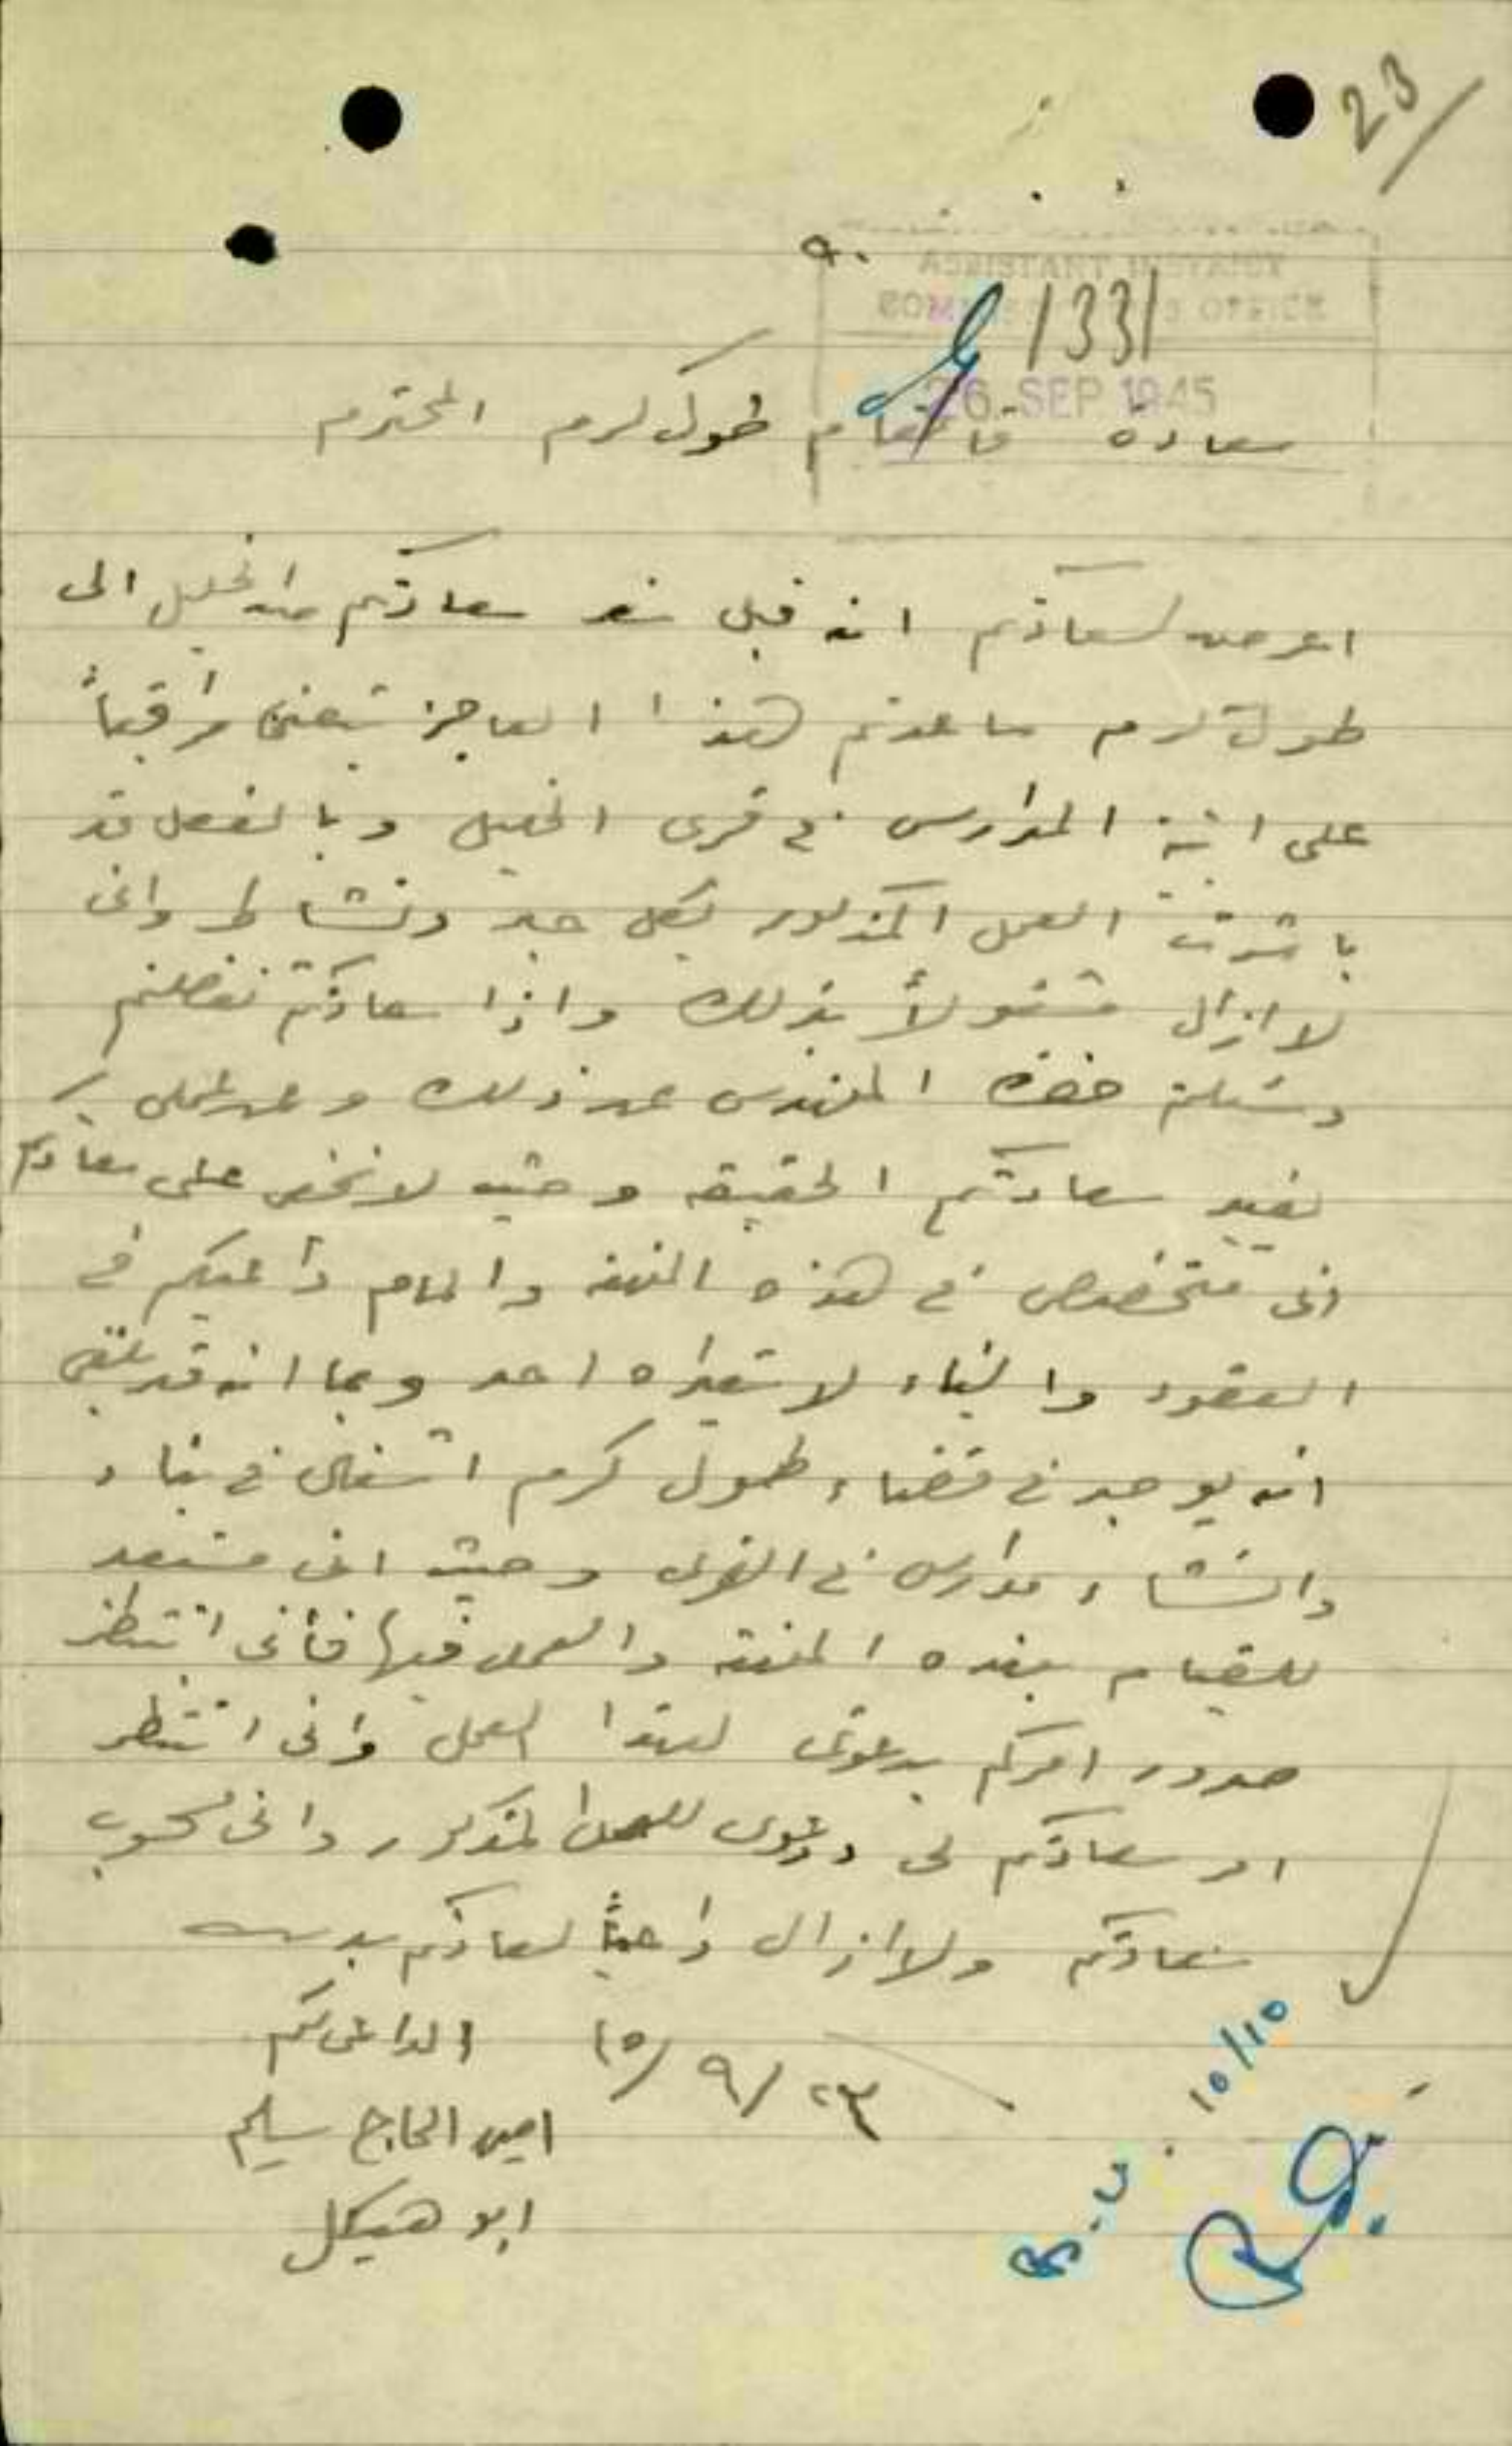 23/
ASSISTANT DISTRICT
COMMISSIONER'S OFFICE
1331
26 SEP 1945
سعادة قائمقام طولكرم المحترم
اعرض لسعادتكم انه قبل نقل سعادتكم من الخليل الى
طولكرم ساعدتم هذا العاجز بتعيني مراقباً
على ابنية المدارس في قرى الخليل وبالفعل قد
باشرت العمل المذكور بكل جد ونشاط واني
لا ازال مشغولاً بذلك واذا سعادتكم تفضلتم
وسئلتم حضرة المهندس عن ذلك وعن عملي
يفيد سعادتكم الحقيقه وحيث لا يخفى على سعادتكم
اني متخصص في هذه المهنه والمام داعيكم في
العقود والبناء لا ينكره احد وبما انه قد بلغني
انه يوجد في قضاء طولكرم اشغال في بناء
وانشاء مدارس في القرى وحيث اني مستعد
للقيام بهذه المهنه والعمل فيها فأني انتظر
صدور امركم بدعوتي لهذا العمل واني انتظر
امر سعادتكم لي ودعوتي للعمل المذكور واني محسوب
سعادتكم ولا ازال داعياً لسعادتكم سيدي
الداعي لكم
٢٣/٩/٤٥
امين الحاج سليم
ابو هيكل
10/10
B.U.